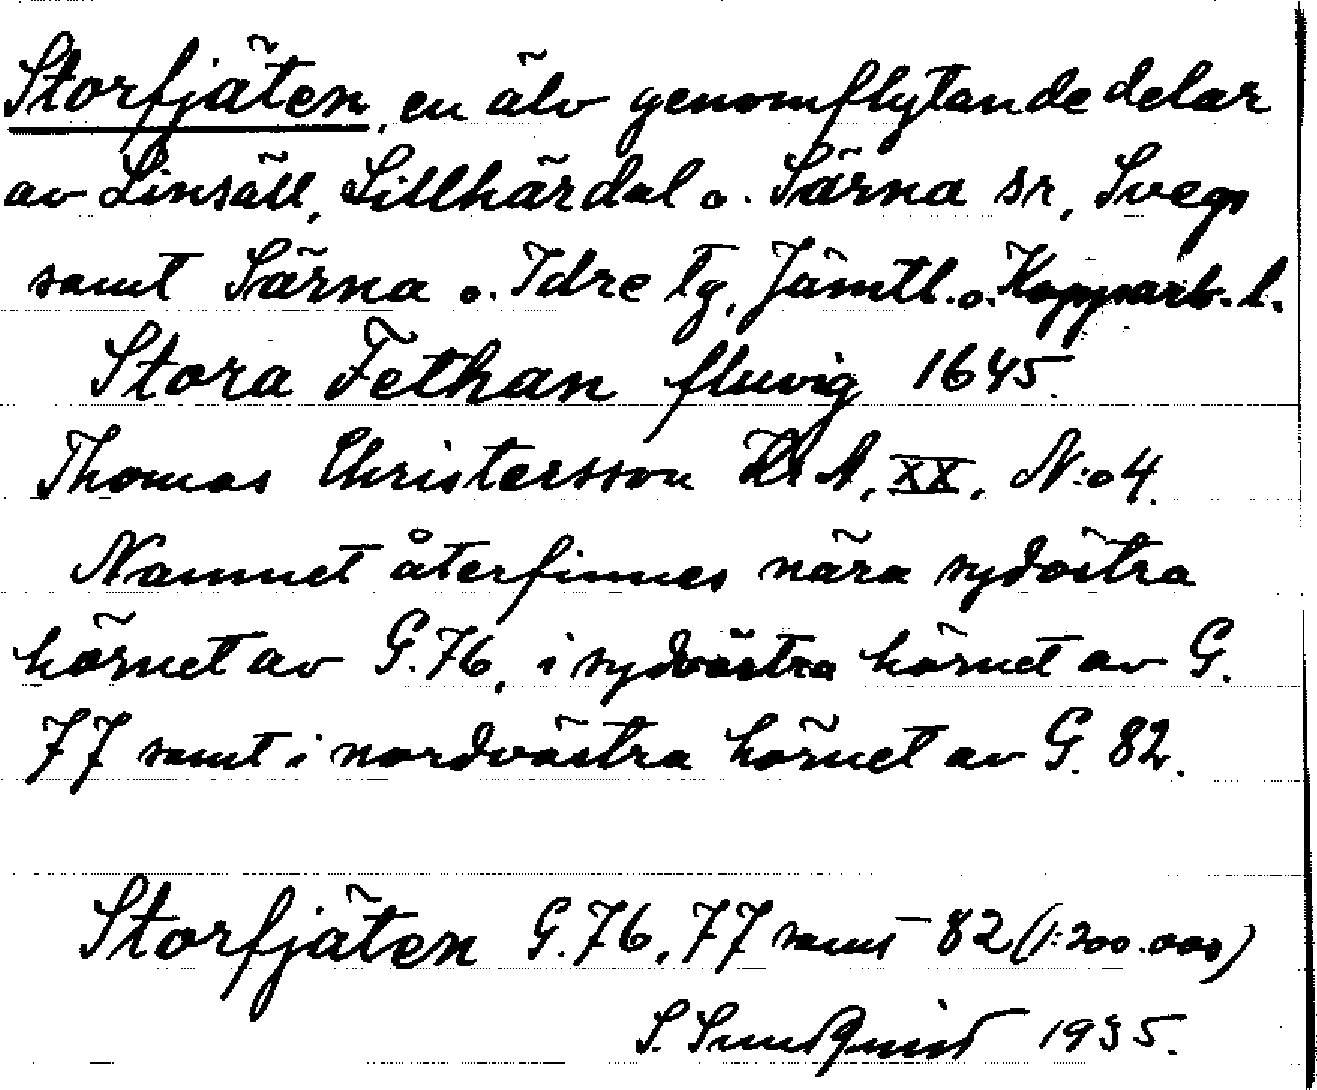 Storfjäten, en älv genomflytande delar
av Linsäll, Lillhärdal o. Särna sr, Svegs
samt Särna o. Idre tg, Jämtl. o. Kopparb. l.
Stora Fethan fluvig 1645.
Thomas Christersson Kr A, XX, N:o 4.
Namnet återfinnes nära sydöstra
hörnet av G. 76, i sydvästra hörnet av G.
77 samt i nordvästra hörnet av G. 82.
Storfjäten G. 76, 77 samt 82 (1:200.000)
S. Sundquist 1935.